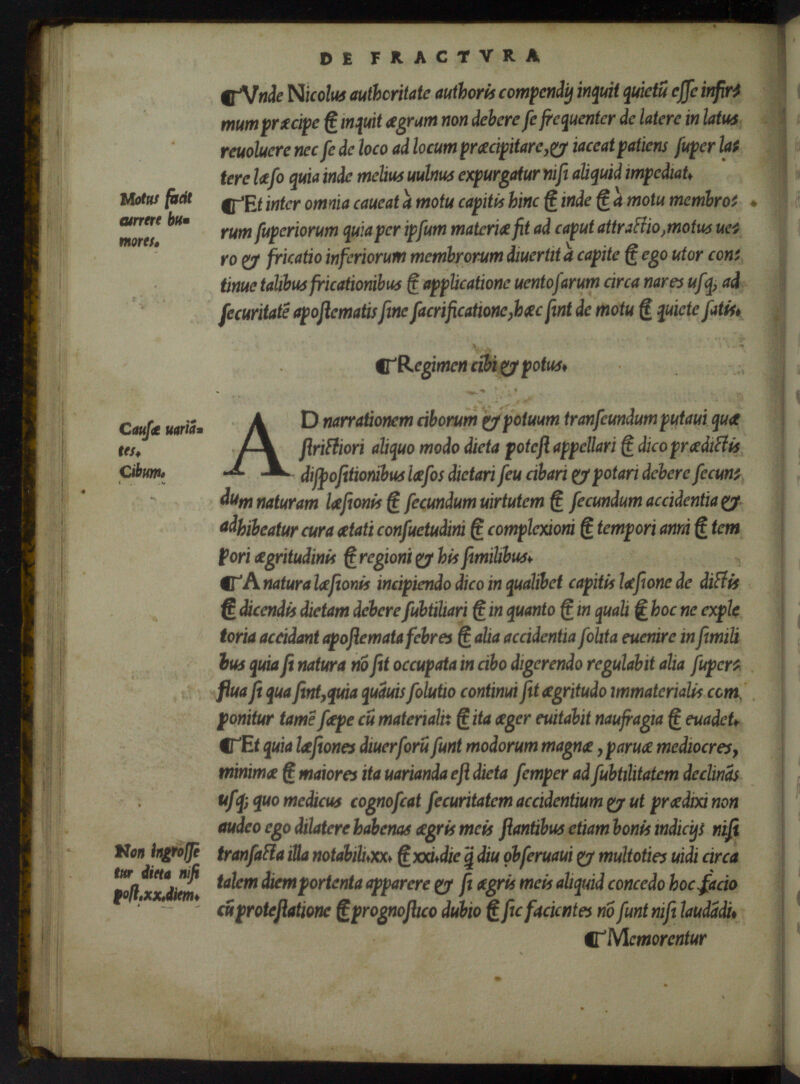 DE FRACTVRA
¶Vnde Nicolus authoritate authoris compendij inquit quietū esse infir=
mum præcipe & inquit ægrum non debere se frequenter de latere in latus
reuoluere nec se de loco ad locum præcipitare, & iaceat patiens super la=
tere læso quia inde melius uulnus expurgatur nisi aliquid impediat.
Motus facit
currere hu=
mores.
¶Et inter omnia caueat à motu capitis hinc & inde & à motu membro=
rum superiorum quia per ipsum materiæ fit ad caput attractio, motus ue=
ro & fricatio inferiorum membrorum diuertit à capite & ego utor con=
tinue talibus fricationibus & applicatione uentosarum circa nares usq; ad
securitatē apostematis sine sacrificatione, hæc sint de motu & quiete satis.
¶Regimen cibi & potus.
Causæ uaria=
tes.
Cibum.
AD narrationem ciborum & potuum transeundum putaui quæ
strictiori aliquo modo dieta potest appellari & dico prædictis
dispositionibus læsos dietari seu cibari & potari debere secun=
dum naturam læsionis & secundum uirtutem & secundum accidentia &
adhibeatur cura ætati consuetudini & complexioni & tempori anni & tem
pori ægritudinis & regioni & his similibus.
¶A natura læsionis incipiendo dico in qualibet capitis læsione de dictis
& dicendis dietam debere subtiliari & in quanto & in quali & hoc ne exple
toria accidant apostemata febres & alia accidentia solita euenire in simili
bus quia si natura nō sit occupata in cibo digerendo regulabit alia super=
flua si qua sint, quia quāuis solutio continui sit ægritudo immaterialis com
ponitur tamē sæpe cū materialis & ita æger euitabit naufragia & euadet.
¶Et quia læsiones diuersorū sunt modorum magnæ, paruæ mediocres,
minimæ & maiores ita uarianda est dieta semper ad subtilitatem declinās
usq; quo medicus cognoscat securitatem accidentium & ut prædixi non
audeo ego dilatere habenas ægris meis stantibus etiam bonis indicijs nisi
Non ingrosse
tur dieta nisi
post.xx.diem.
transacta illa notabili.xx. & xxi.die q̄ diu obseruaui & multoties uidi circa
talem diem portenta apparere & si ægris meis aliquid concedo hoc facio
cū protestatione & prognostico dubio & sic facientes nō sunt nisi laudādi.
¶Memorentur